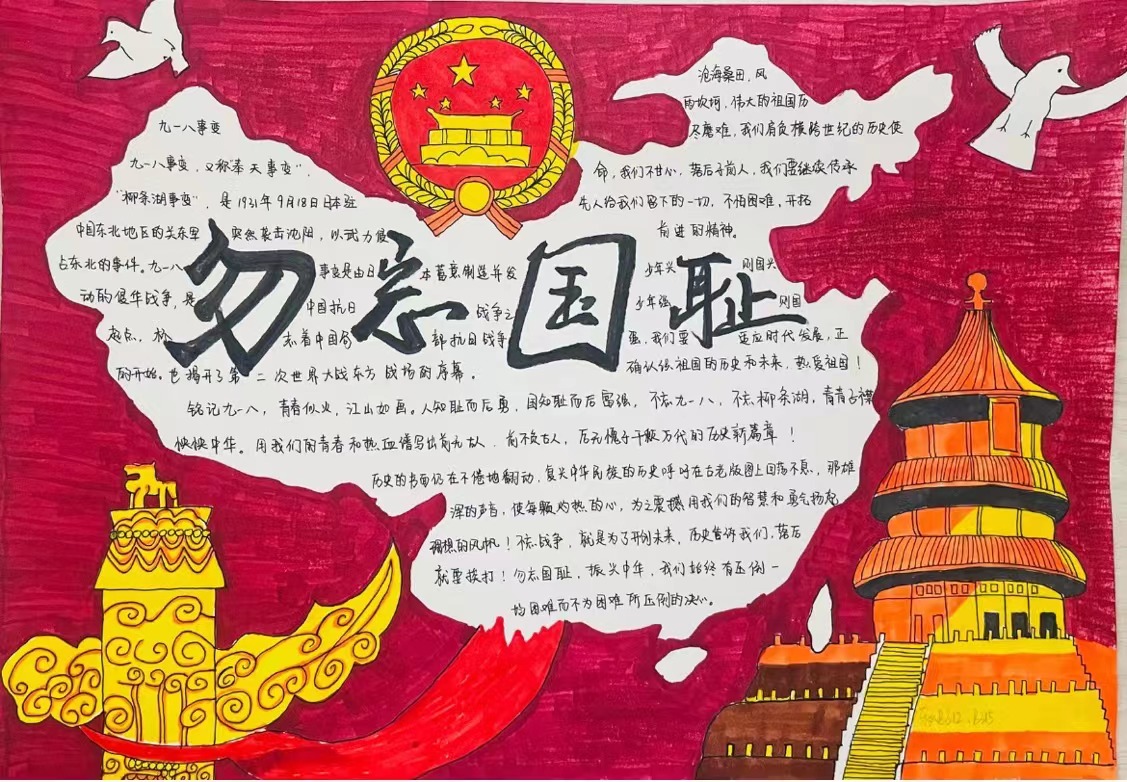 九一八事变
九一八事变，又称"奉天事变"，
"柳条湖事变"，是1931年9月18日日本驻
中国东北地区的关东军 突然袭击沈阳，以武力侵
占东北的事件。九一八 事变是由日 本蓄意制造并发
动的侵华战争，是 中国抗日 战争之
起点，标 志着中国局 部抗日战争
的开始。也揭开了第 二次世界大战东方战场的序幕。
沧海桑田，风
雨坎坷，伟大的祖国历
尽磨难，我们肩负横跨世纪的历史使
命，我们不甘心，落后于前人，我们要继续传承
先人给我们留下的一切，不怕困难，开拓
前进的精神。
少年兴 则国兴
少年强 则国
强，我们要 适应时代发展，正
确认组国的历史和未来，热爱祖国！
勿忘国耻
铭记九一八，青春似火，江山如画。人知耻而后勇，国知耻而后富强，不忘九一八，不忘柳条湖，青青子襟
怏怏中华。用我们的青春和热血谱写出前无古人，后无愧于千秋万代的历史新篇章！
历史的书面仍在不倦地翻动，复兴中华民族的历史呼吁在古老版图上回荡不息，那雄
浑的声音，使每颗灼热的心，为之震撼用我们的智慧和勇气扬起
理想的风帆！不忘战争，就是为了开创未来，历史告诉我们，落后
就要挨打！勿忘国耻，振兴中华，我们始终有压倒一
切困难而不为困难所压倒的决心。